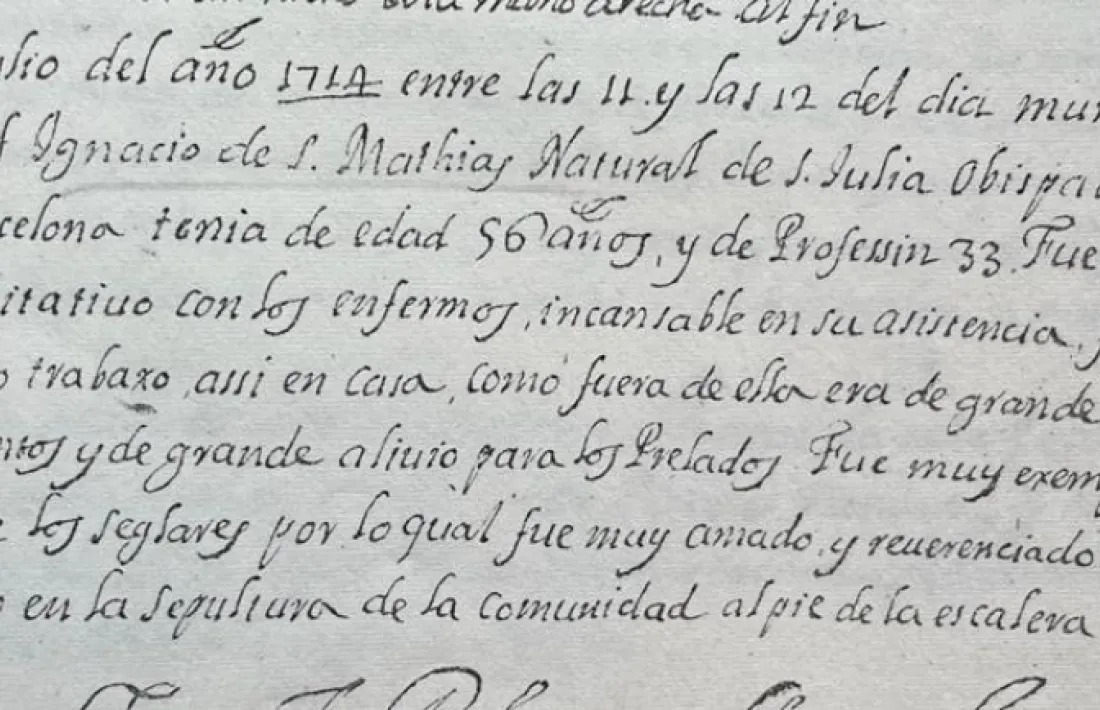 mano drecha al fin
ulio del año 1714 entre las 11. y las 12 del dia mur
f Ignacio de S. Mathias Natural de S. Julia Obispa
celona tenia de edad 56 años, y de Professin 33. Fue
itatiuo con los enfermos, incansable en su asistencia, y
o trabaxo, assi en casa, como fuera de ella era de grande
ntos y de grande aliuio para los Prelados Fue muy exem
los seglares por lo qual fue muy amado, y reuerenciado
o en la sepultura de la comunidad al pie de la escalera